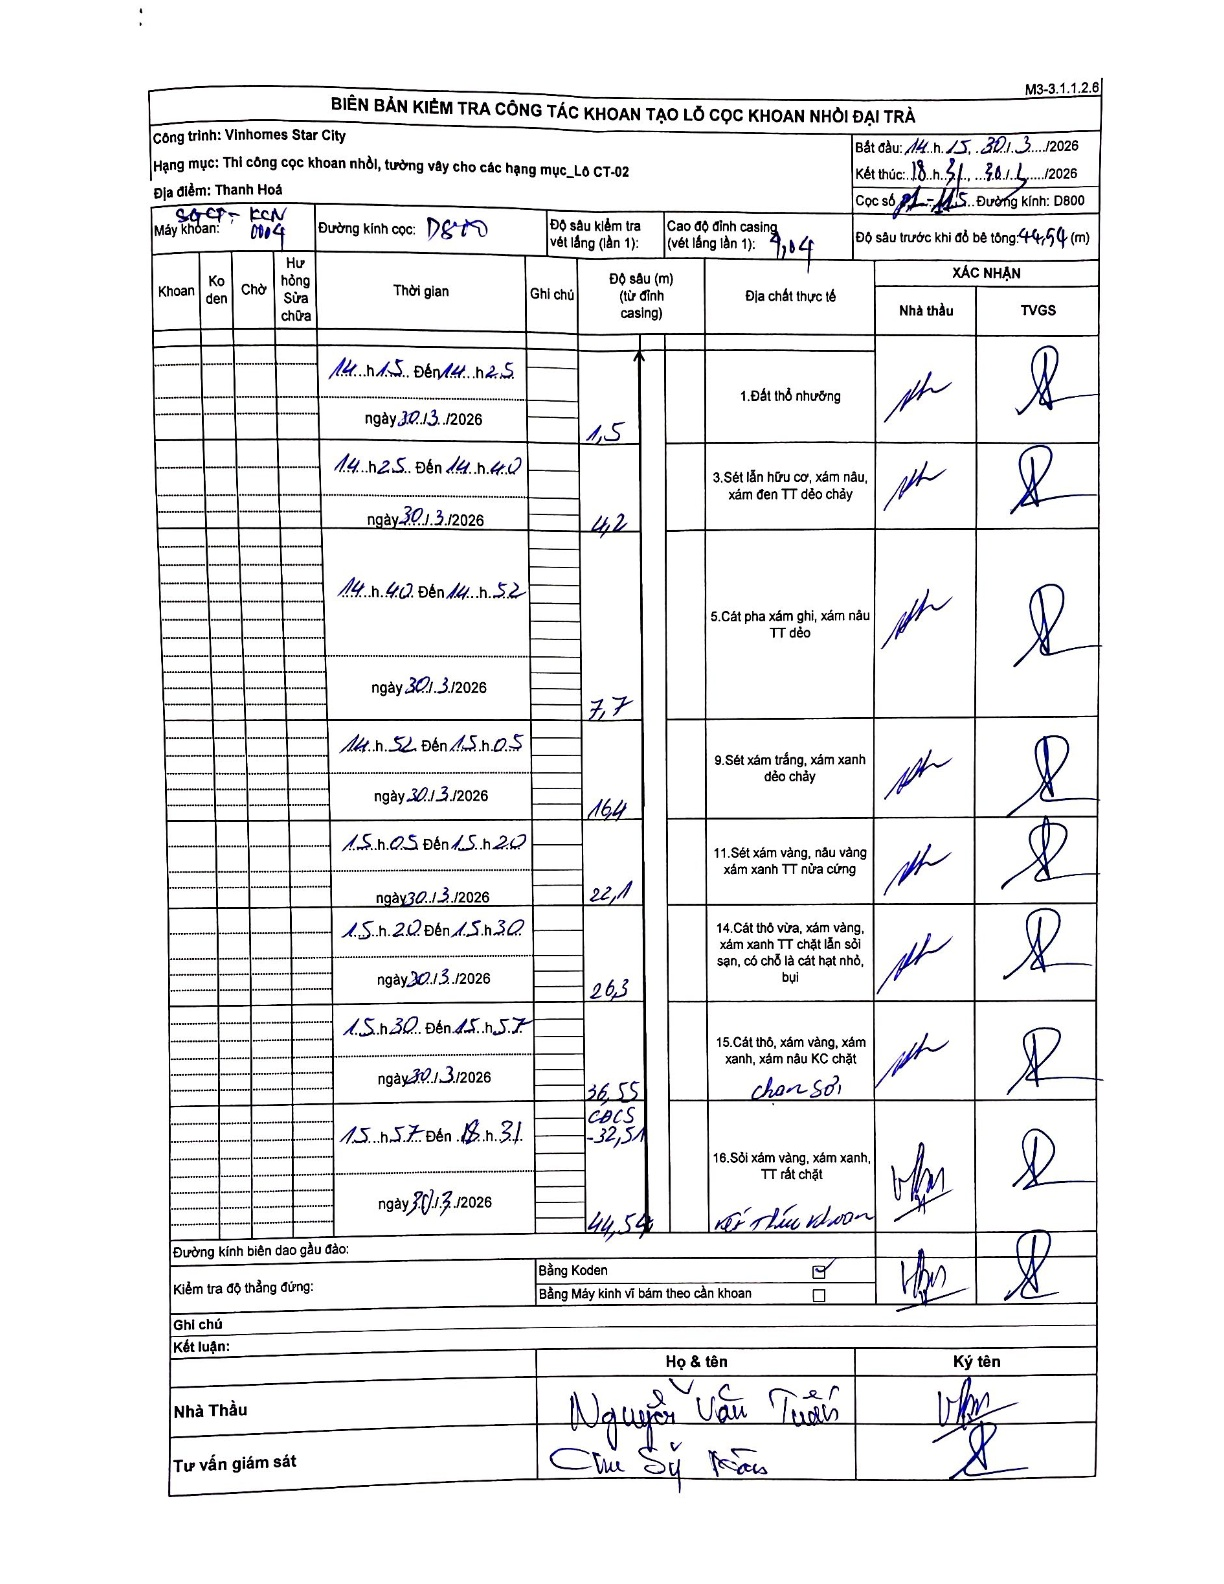 M3-3.1.1.2.6
BIÊN BẢN KIỂM TRA CÔNG TÁC KHOAN TẠO LỖ CỌC KHOAN NHỒI ĐẠI TRÀ
Công trình: Vinhomes Star City
Hạng mục: Thi công cọc khoan nhồi, tường vây cho các hạng mục_Lô CT-02
Địa điểm: Thanh Hoá
Bắt đầu: 14.h.15, 30/.3..../2026
Kết thúc: 18..h.31, ..30./.3...../2026
Cọc số Đường kính: D800
Máy khoan: KCN 0004
Đường kính cọc: D800
Độ sâu kiểm tra vét lắng (lần 1):
Cao độ đỉnh casing (vét lắng lần 1): 4,04
Độ sâu trước khi đổ bê tông: 44,54 (m)
Khoan
Ko den
Chờ
Hư hỏng Sửa chữa
Thời gian
Ghi chú
Độ sâu (m) (từ đỉnh casing)
Địa chất thực tế
XÁC NHẬN
Nhà thầu
TVGS
14...h15.. Đến 14...h25.
ngày 30../3../2026
1,5
1.Đất thổ nhưỡng
14...h25.. Đến 14..h.40
ngày 30../.3./2026
4,2
3.Sét lẫn hữu cơ, xám nâu,
xám đen TT dẻo chảy
14..h.40. Đến 14...h.52
ngày 30./.3./2026
7,7
5.Cát pha xám ghi, xám nâu
TT dẻo
14.h.52. Đến 15.h.05
ngày 30./3../2026
16,4
9.Sét xám trắng, xám xanh
dẻo chảy
15.h.05 Đến 15..h20
ngày 30../3./2026
22,1
11.Sét xám vàng, nâu vàng
xám xanh TT nửa cứng
15..h.20 Đến 15.h30.
ngày 30../3../2026
26,3
14.Cát thô vừa, xám vàng,
xám xanh TT chặt lẫn sỏi
sạn, có chỗ là cát hạt nhỏ,
bụi
15.h30.. Đến 15..h57.
ngày 30../.3/2026
36,55
15.Cát thô, xám vàng, xám
xanh, xám nâu KC chặt
chạm sỏi
15...h57. Đến .18.h.31.
CĐCS
-32,51
ngày 30./.3../2026
44,54
16.Sỏi xám vàng, xám xanh,
TT rất chặt
Kết thúc khoan
Đường kính biên dao gầu đào:
Kiểm tra độ thẳng đứng:
Bằng Koden
Bằng Máy kinh vĩ bám theo cần khoan
Ghi chú
Kết luận:
Họ & tên
Ký tên
Nhà Thầu
Nguyễn Văn Tuấn
Tư vấn giám sát
Chu Sỹ